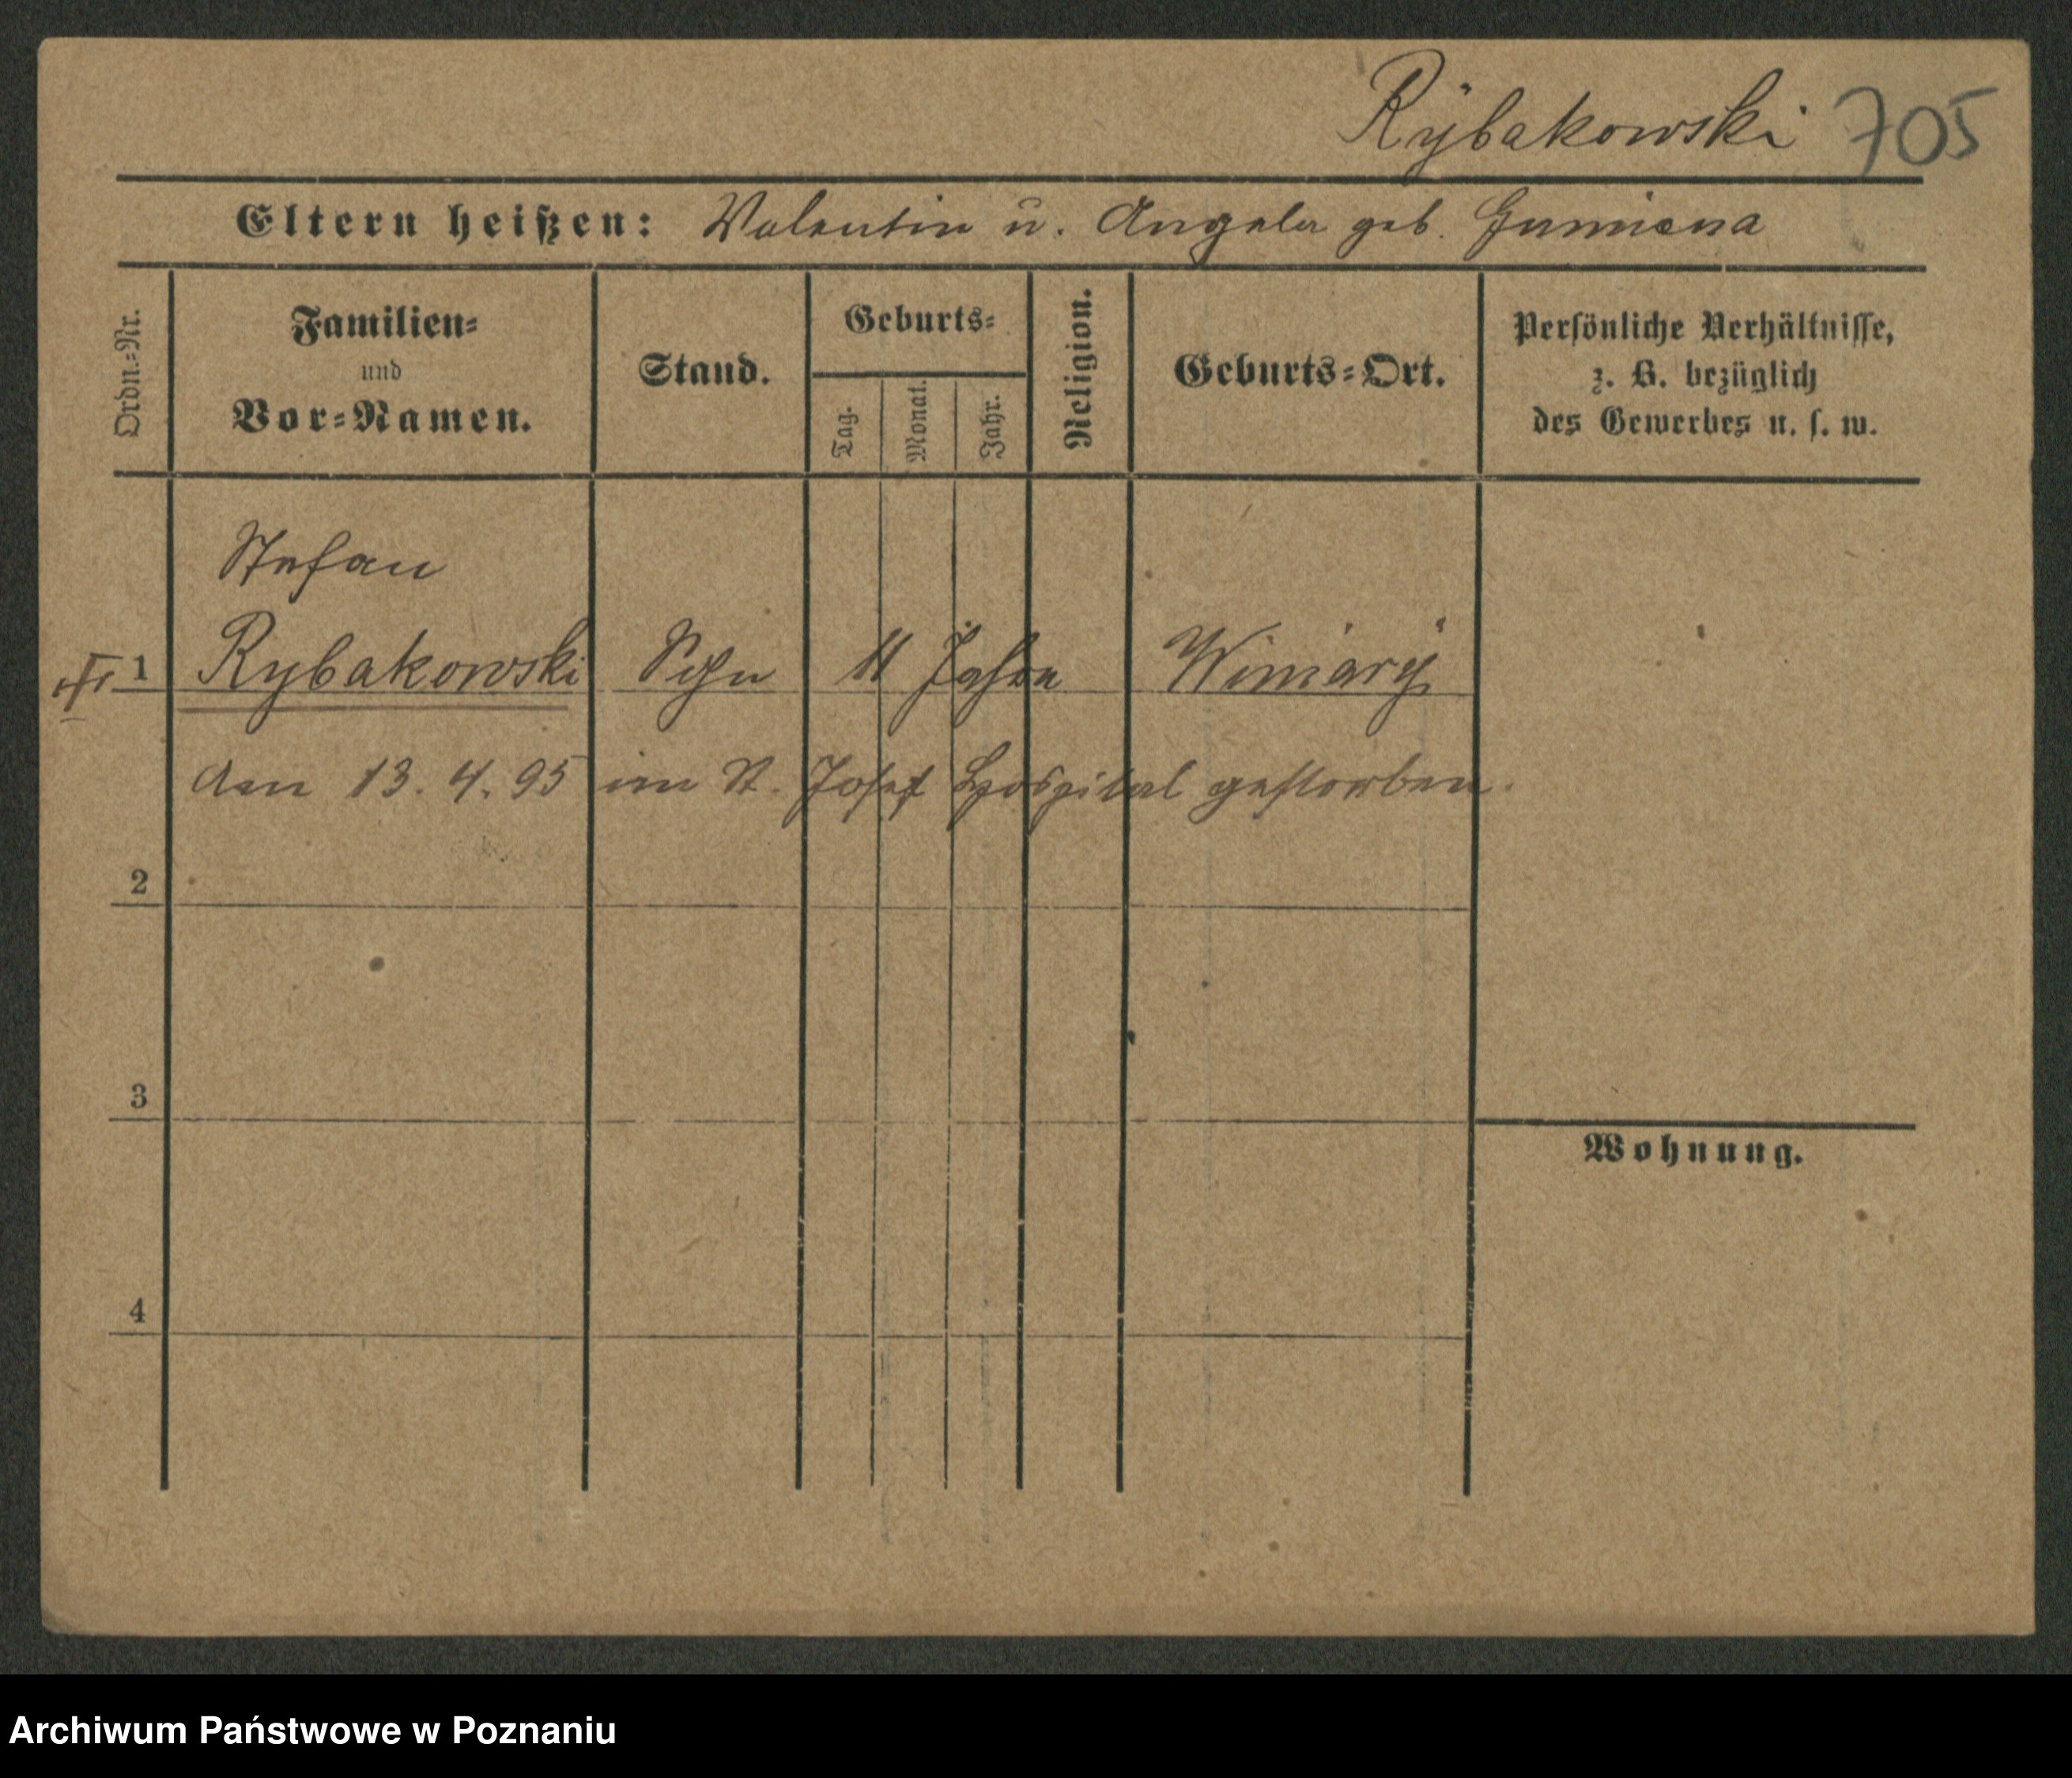 Rybakowski 705
Eltern heißen: Valentin u. Angela geb. Gumiena
Ordn.=Nr.
Familien=
und
Vor=Namen.
Stand.
Geburts=
Tag.
Monat.
Jahr.
Religion.
Geburts=Ort.
Persönliche Verhältnisse,
z. B. bezüglich
des Gewerbes u. s. w.
Stefan
1 Rybakowski Sohn 11 Jahre Winiary
den 13. 4. 95 im St. Josef Hospital gestorben.
2
3
Wohnung.
4
Archiwum Państwowe w Poznaniu